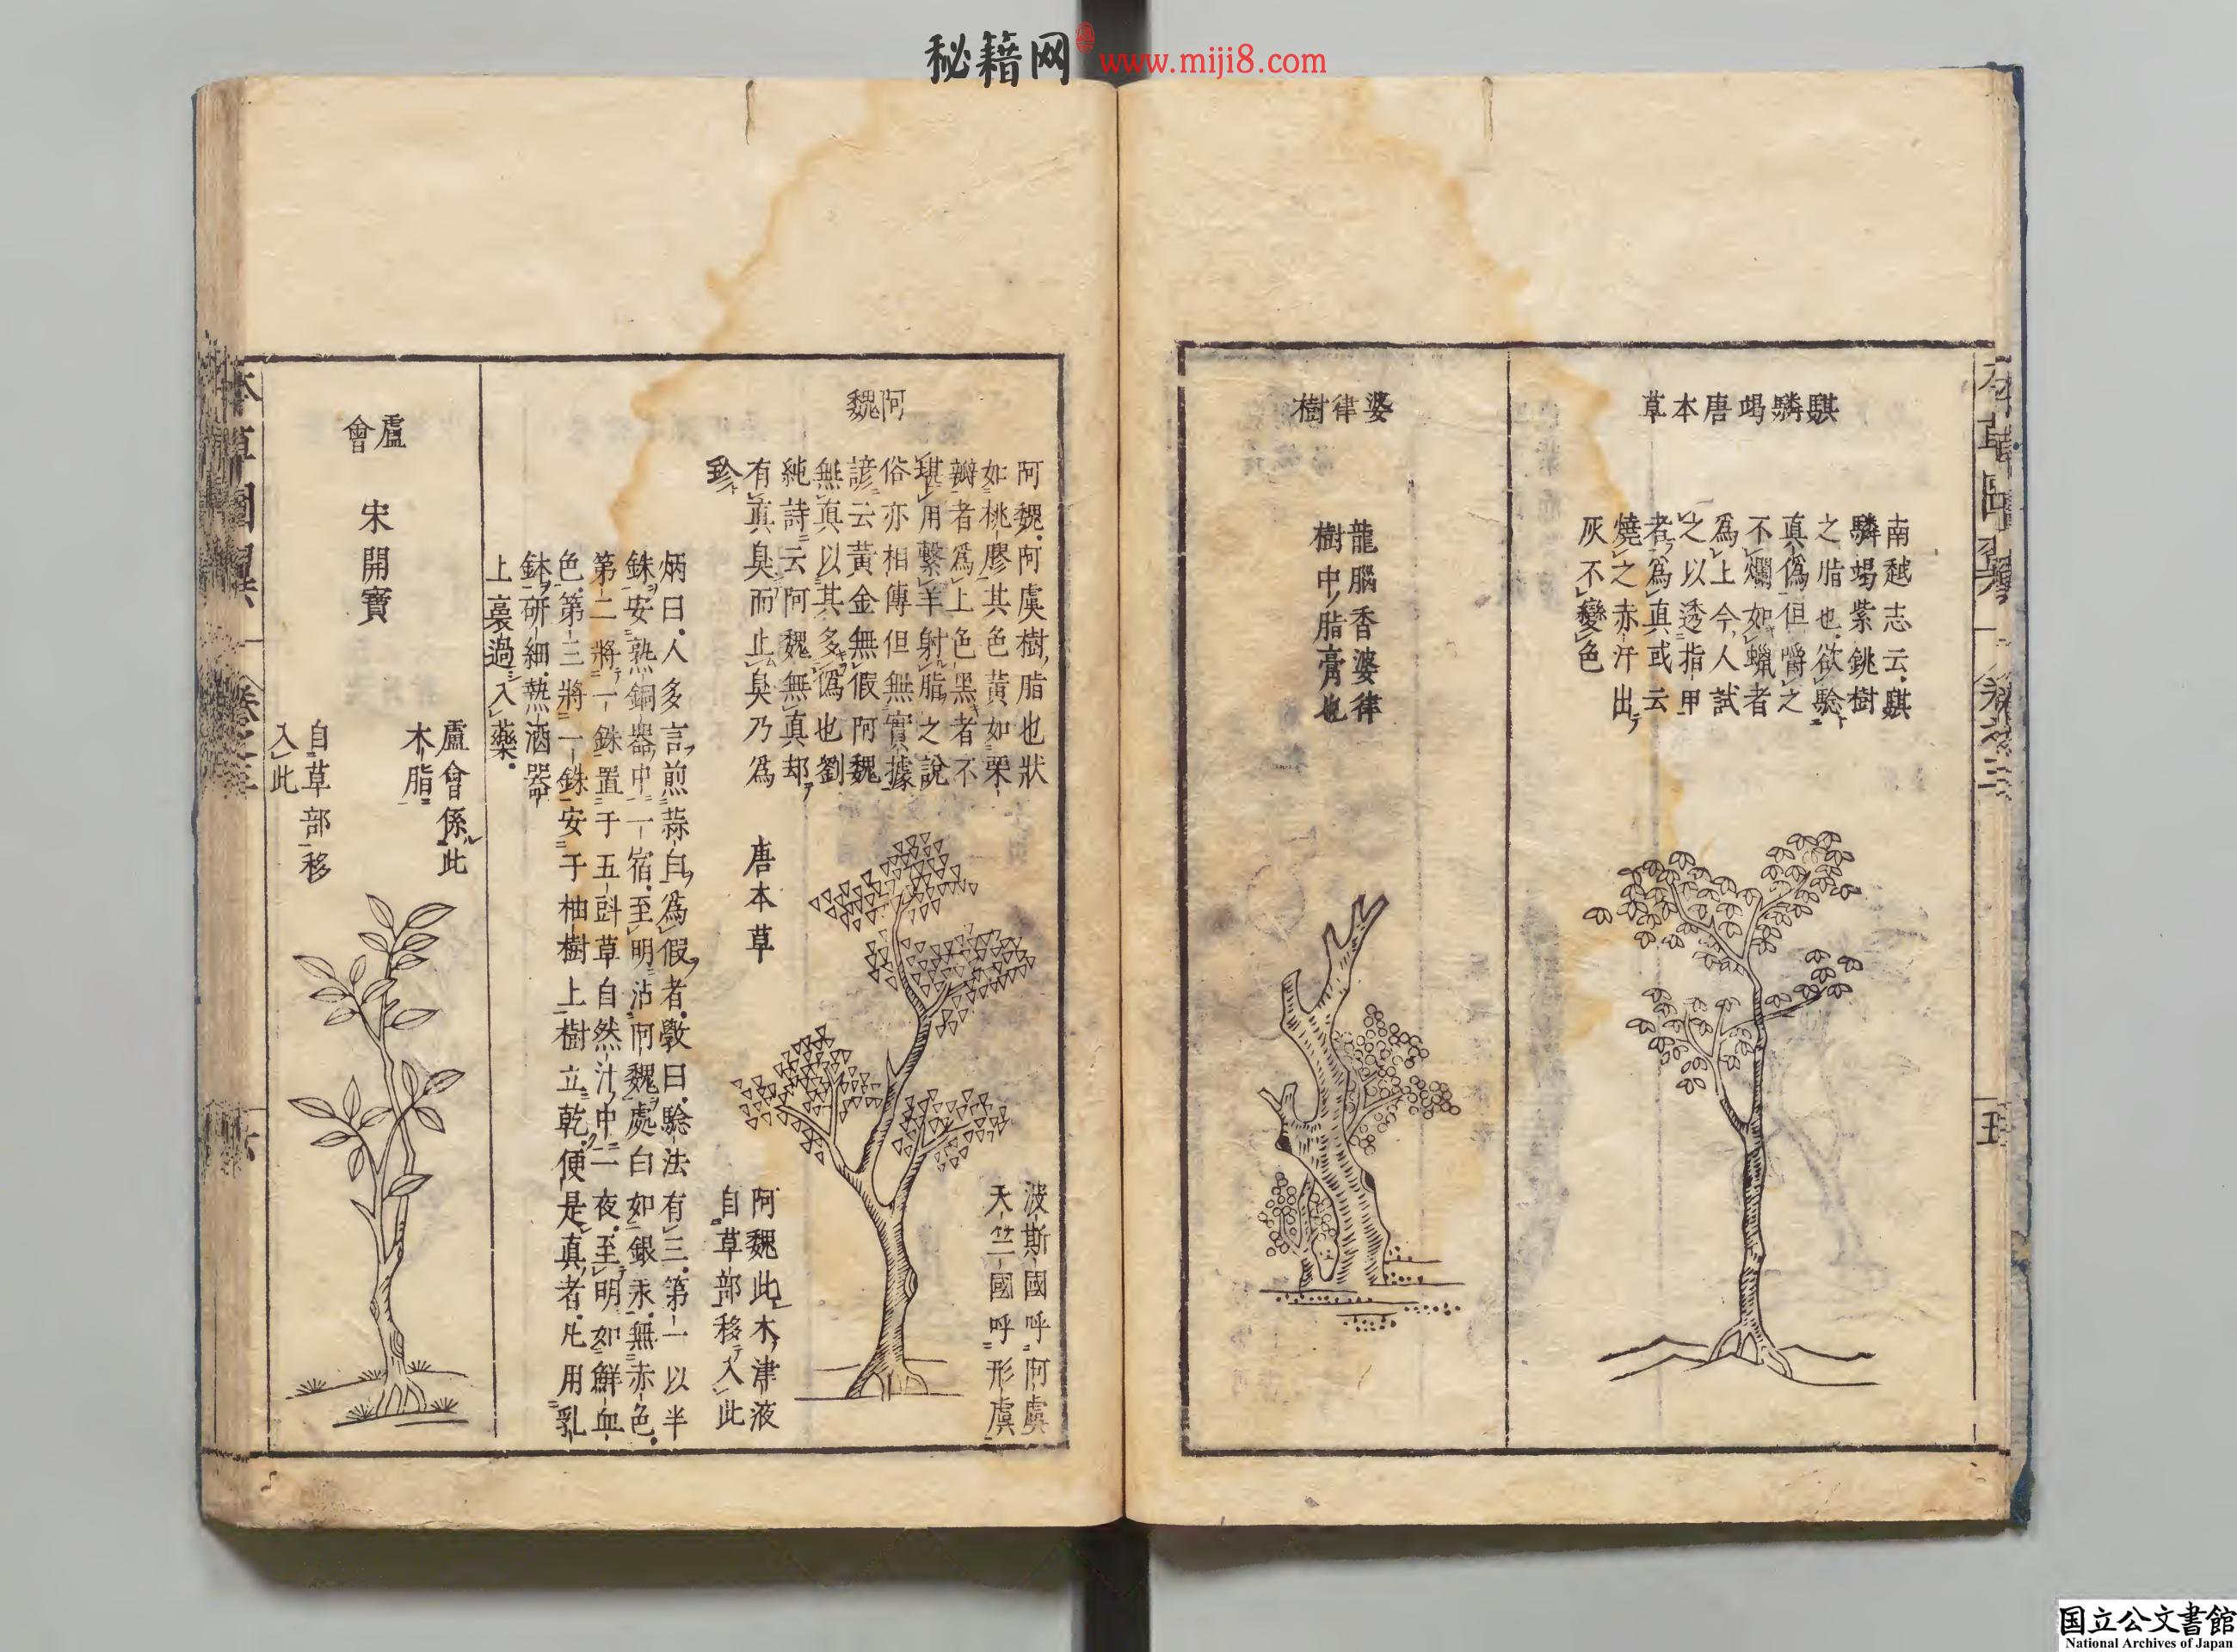 秘籍网 www.miji8.com
騏驎竭唐本草
南越志云騏
驎竭紫鉚樹
之脂也欲驗
真偽但嚼之
不爛如蠟者
為上今人試
之以透指甲
者為真或云
燒之赤汁出
灰不變色
婆律樹
龍腦香婆律
樹中脂膏也
阿魏
阿魏阿虞樹脂也狀
如桃膠其色黃如栗
瓣者為上色黑者不
堪用繫羊射脂之說
俗亦相傳但無實據
諺云黃金無假阿魏
無真以其多偽也劉
純詩云阿魏無真却
有真臭而止臭乃為
珍
唐本草
波斯國呼阿虞
天竺國呼形虞
阿魏此木津液
自草部移入此
炳曰人多言煎蒜白為假者斆曰驗法有三第一以半
銖安熟銅器中一宿至明沾阿魏處白如銀汞無赤色
第二將一銖置于五㪷草自然汁中一夜至明如鮮血
色第三將一銖安于柚樹上樹立乾便是真者凡用乳
鉢研細熱酒器
上裛過入藥
盧會
宋開寶
盧會係此
木脂
自草部移
入此
本草圖翼
卷之三
国立公文書館
National Archives of Japan